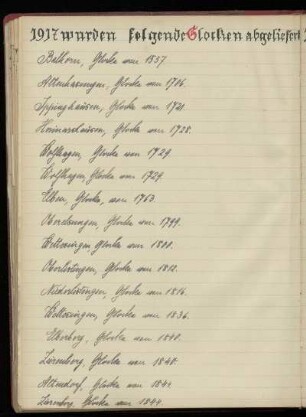 1917 wurden folgende Glocken abgeliefert
Balhorn, Glocke von 1557.
Altenhasungen, Glocke von 1706.
Ippinghausen, Glocke von 1721.
Heimarshausen, Glocke von 1728.
Wolfhagen, Glocke von 1729.
Wolfhagen, Glocke von 1729.
Elben, Glocke, von 1763.
Oberelsungen, Glocke von 1799.
Wettesingen, Glocke von 1800.
Oberlistingen, Glocke von 1812.
Niederlistingen, Glocke von 1816.
Wettesingen, Glocke von 1836.
Elberberg, Glocke von 1840.
Zierenberg, Glocke von 1840.
Altendorf, Glocke von 1844.
Zierenberg Glocke von 1844.